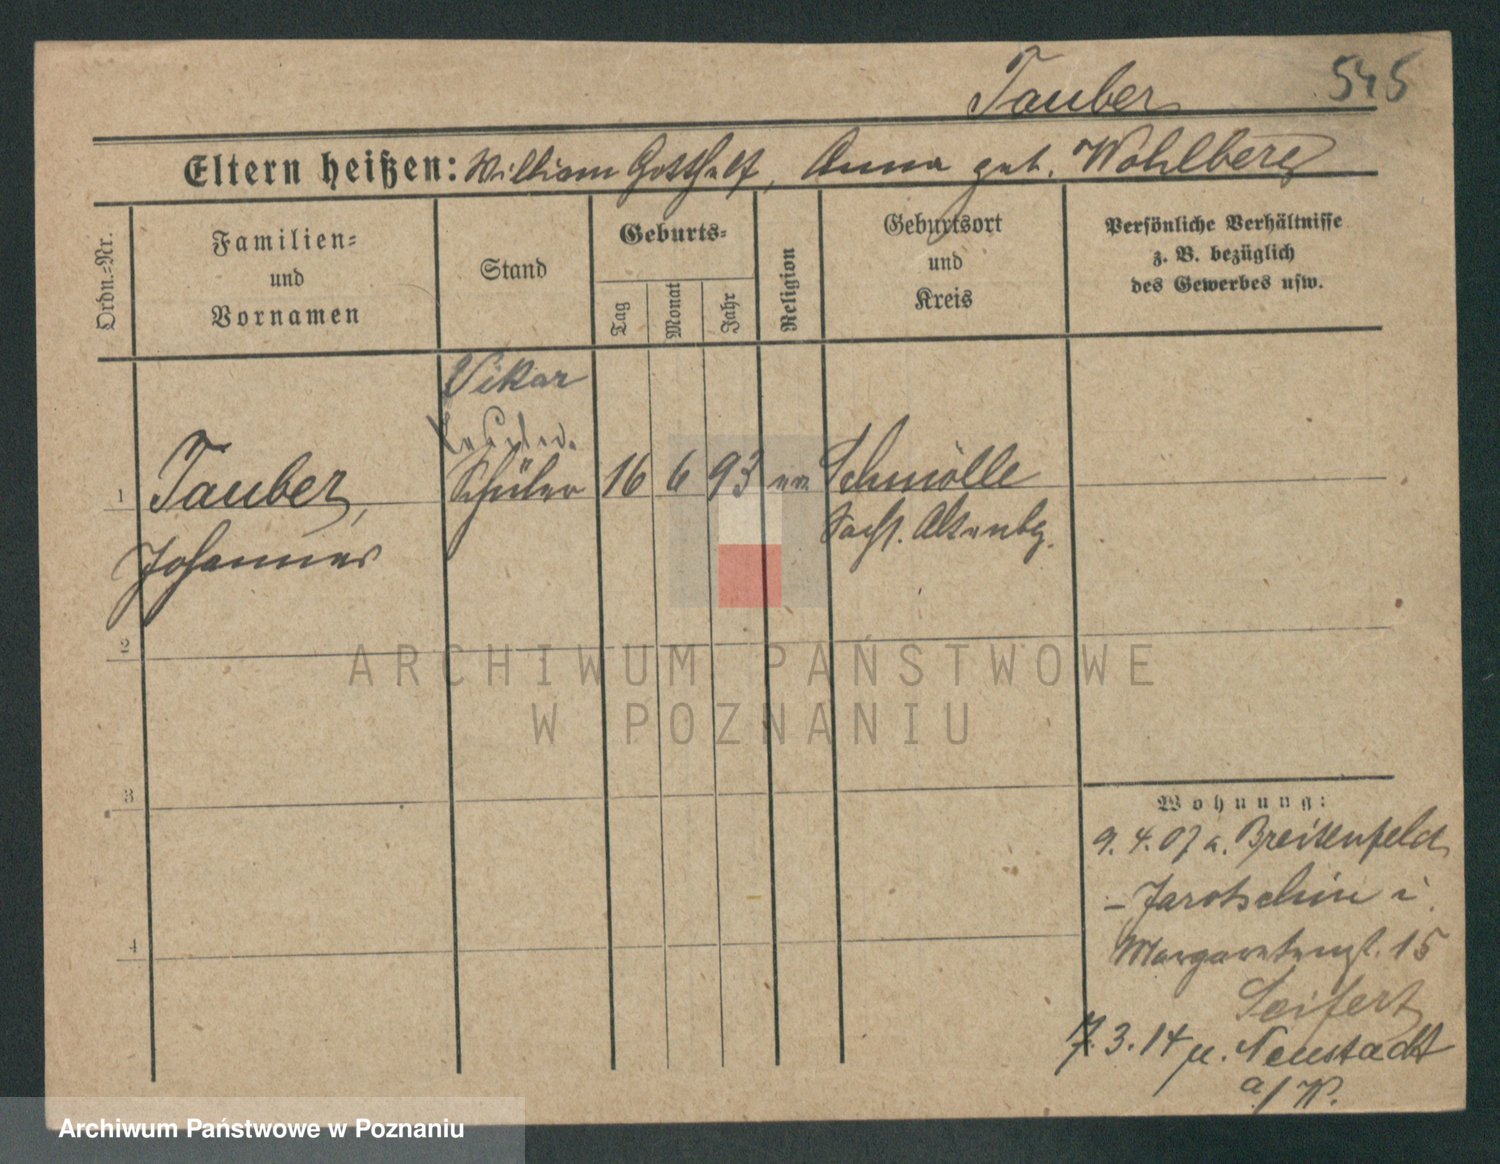 Tauber
545
Eltern heißen: William Gotthelf, Anna geb. Wohlberg
Ordn.=Nr.
Familien=
und
Vornamen
Stand
Geburts=
Tag
Monat
Jahr
Religion
Geburtsort
und
Kreis
Persönliche Verhältnisse
z. B. bezüglich
des Gewerbes usw.
Vikar
1
Tauber,
Schüler
16
6
93
ev.
Schmölle
Johannes
Sachs. Altenbg.
2
3
4
Wohnung:
9. 4. 07 a. Breitenfeld
– Jarotschin i.
Margaretenst. 15
Seifert
7. 3. 14 n. Neustadt
a/W.
ARCHIWUM PAŃSTWOWE
W POZNANIU
Archiwum Państwowe w Poznaniu